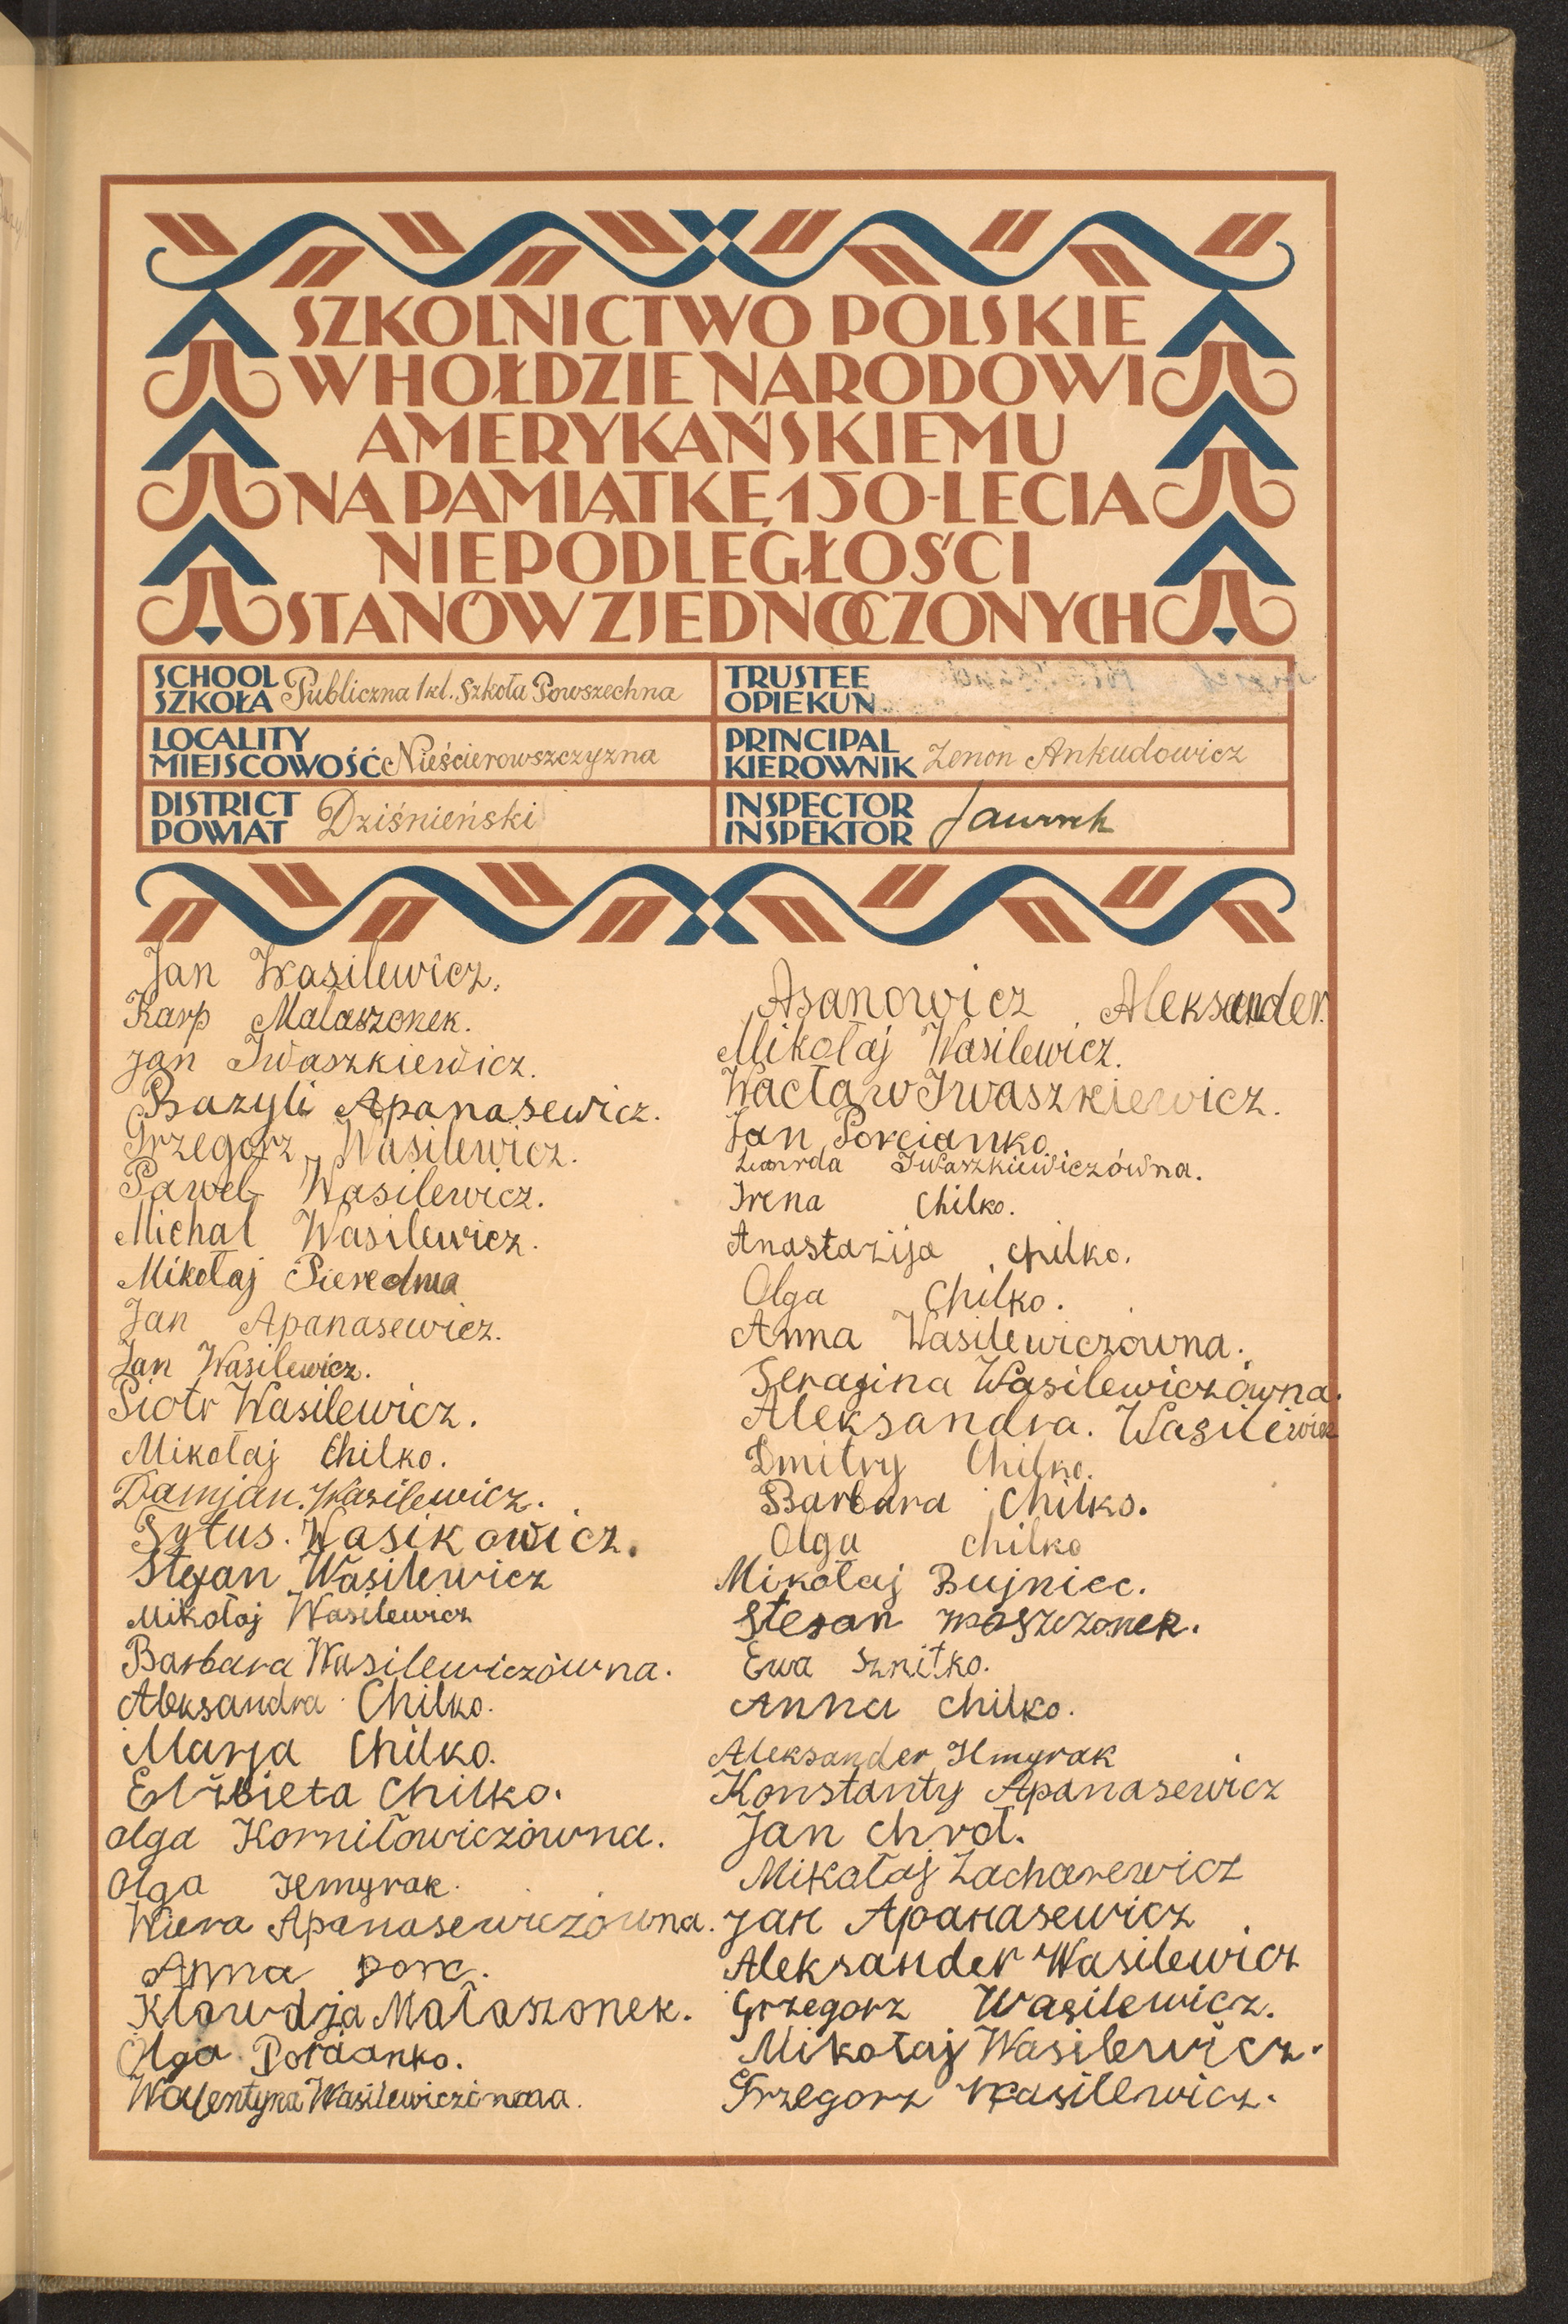 SZKOLNICTWO POLSKIE
W HOŁDZIE NARODOWI
AMERYKAŃSKIEMU
NA PAMIĄTKĘ 150-LECIA
NIEPODLEGŁOŚCI
STANÓW ZJEDNOCZONYCH
SCHOOL
SZKOŁA Publiczna 1 kl. Szkoła Powszechna
LOCALITY
MIEJSCOWOŚĆ Nieścierowszczyzna
DISTRICT
POWIAT Dziśnieński
TRUSTEE
OPIEKUN
PRINCIPAL
KIEROWNIK Zenon Ankudowicz
INSPECTOR
INSPEKTOR
Jan Wasilewicz.
Karp Malaszonek.
Jan Iwaszkiewicz.
Bazyli Apanasewicz.
Grzegorz Wasilewicz.
Paweł Wasilewicz.
Michał Wasilewicz.
Mikołaj
Jan Apanasewicz.
Jan Wasilewicz.
Piotr Wasilewicz.
Mikołaj Chilko.
Damjan. Wasilewicz.
Sytus. Wasikowicz.
Stefan Wasilewicz
Mikołaj Wasilewicz
Barbara Wasilewiczówna.
Aleksandra Chilko.
Marja Chilko.
Elżbieta Chilko.
Olga Korniłowiczówna.
Olga Hmyrak.
Wiera Apanasewiczówna.
Anna Porc.
Kławdja Małaszonek.
Olga Porcianko.
Walentyna
Asanowicz Aleksander.
Mikołaj Wasilewicz.
Wacław Iwaszkiewicz.
Jan Porcianko.
Iwaszkiewiczówna.
Irena Chilko.
Anastazija Chilko.
Olga Chilko.
Anna Wasilewiczowna.
Serafina Wasilewiczówna.
Aleksandra. Wasilewicz
Dmitry Chilko.
Barbara Chilko.
Olga Chilko
Mikołaj Bujniec.
Stefan
Ewa Sznitko.
Anna Chilko.
Aleksander Hmyrak
Konstanty Apanasewicz
Jan Chroł.
Mikołaj Zacharewicz
Jan Apanasewicz
Aleksander Wasilewicz
Grzegorz Wasilewicz.
Mikołaj Wasilewicz.
Grzegorz Wasilewicz.